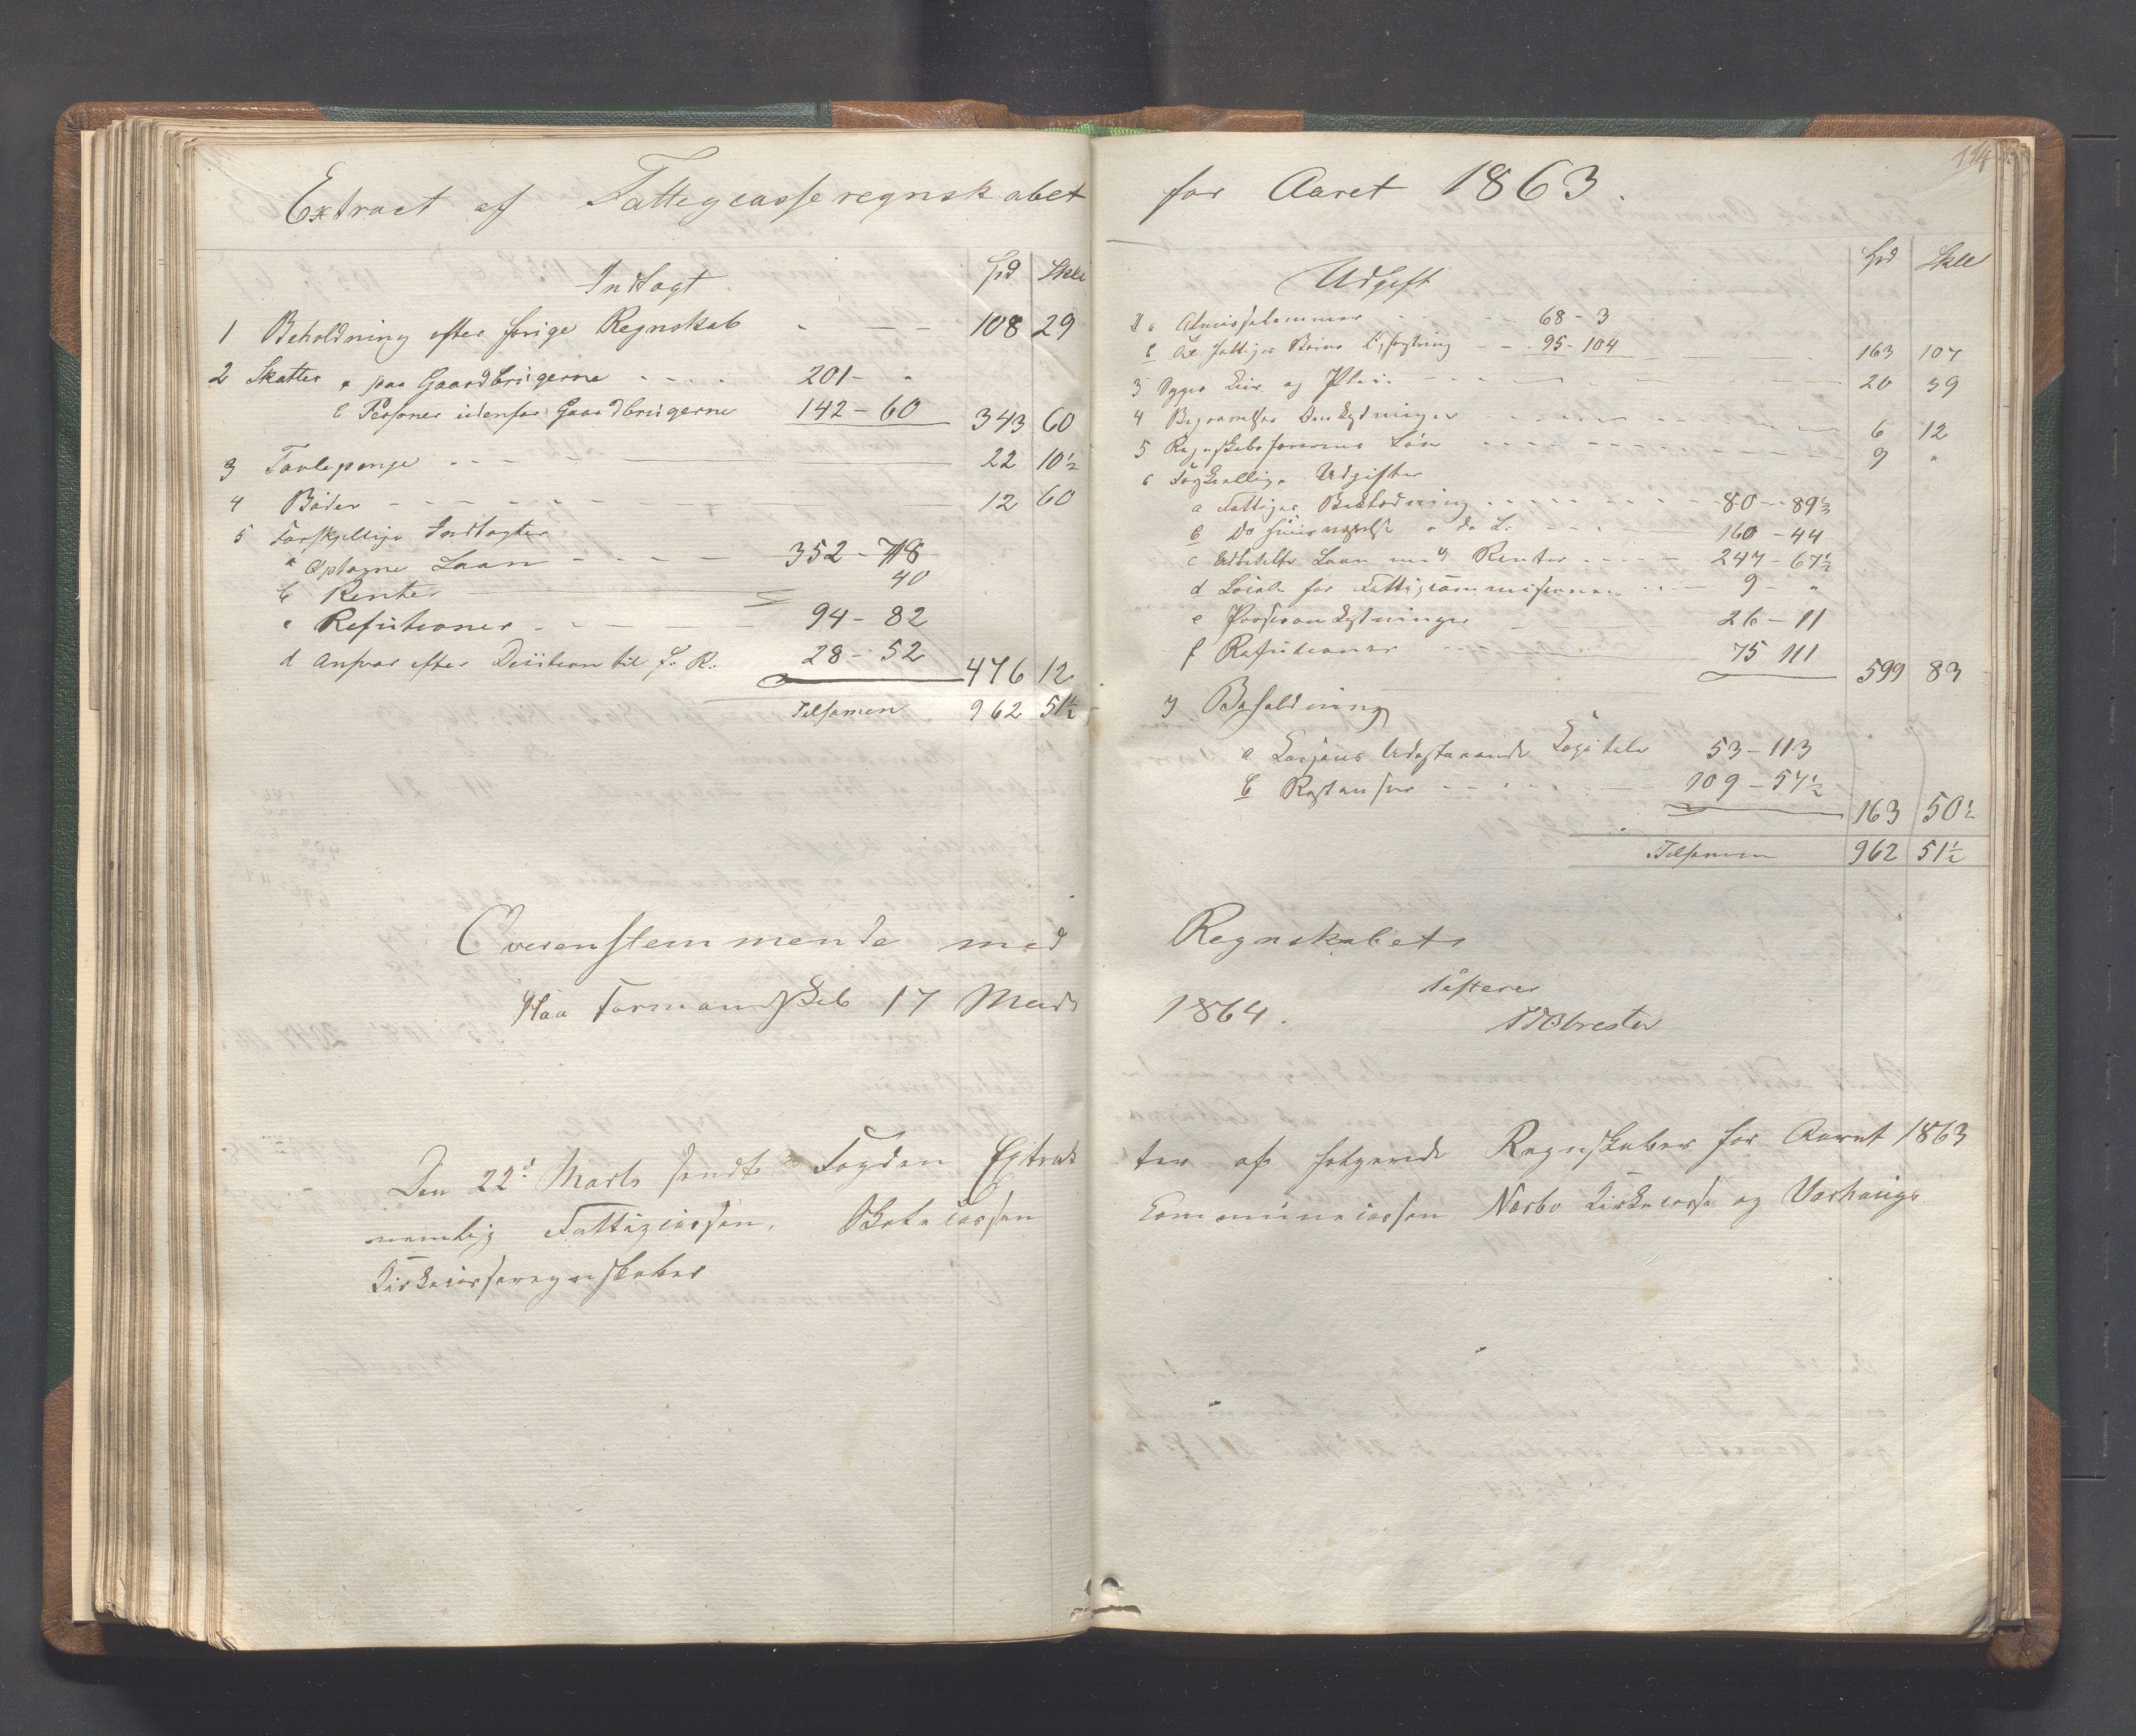 Extract af Fattigcasseregnskabet for Aaret 1863.
Indtægt Spd Skll
1 Beholdning efter forige Regnskab 108 29
2 Skatter a paa Gaardbrugerne 201 - "
b Personer udenfor Gaardbrugerne 142 - 60 343 60
3 Tavlepenge 22 10½
4 Bøder 12 60
5 Forskjellige Indtægter
a Optagne Laan 352 - 78
b Renter 40
c Refutioner 94 - 82
d Ansvar efter Desition til F. R. 28 - 52 476 12
Tilsamen 962 51½
Overensstemmende med Regnskabet
Haa Formandskab 17 Marts 1864.
Den 22d Marts sendt Fogden Extrak
nemlig Fattigcassen, Skolecassen
Kirkecasseregnskaber
114
Udgift Spd Skll
1 a Almisselemmer 68 - 3
b fattiges Børns Opfostring 95 - 104 163 107
3 Syges Kur og Pleie 20 39
4 Begravelses Omkostninger 6 12
5 Regnskabsførerens Løn 9 "
6 Forskjellige Udgifter
a Fattiges Beklædning 80 - 89½
b Do Huusværelse 160 - 44
c Udbetalte Laan med Renter 247 - 67½
d Locale for Fattigcommissionen 9 - "
e 26 - 11
f Refutioner 75 111 599 83
7 Beholdning
a Cassens Udestaaende Capitaler 53 - 113
b Restanser 109 - 57½
163 50½
Tilsamen 962 51½
tester
ter af følgende Regnskaber for Aaret 1863
Communecassen Nærbø Kirkecasse og Varhaugs